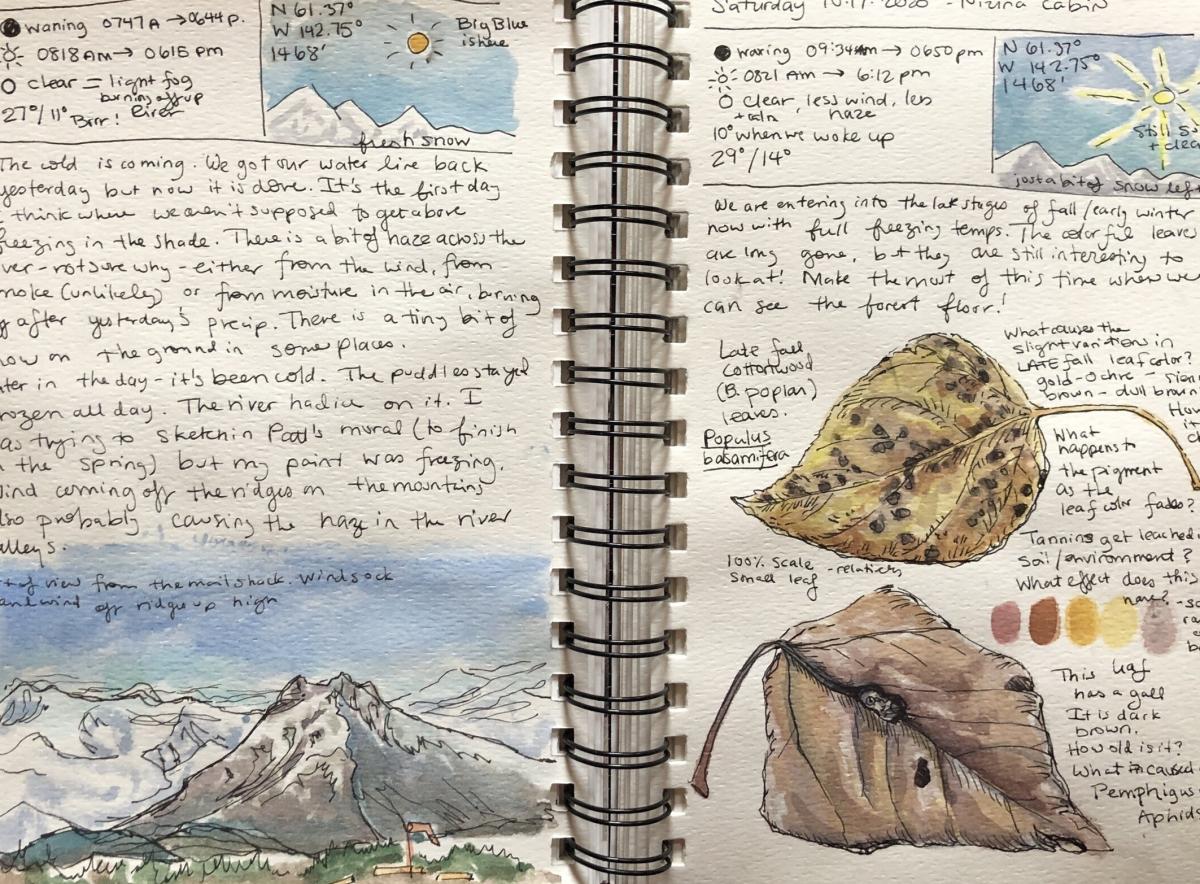 waning 0747A → 0644 p.
0818 AM → 0615 pm
clear = light fog
burning off up
27°/11° Brr!
N 61.37°
W 142.75°
1468'
Big Blue
is here
fresh snow
The cold is coming. We got our water line back
yesterday but now it is done. It's the first day
think where we aren't supposed to get above
freezing in the shade. There is a bit of haze across the
ver - not sure why - either from the wind, from
moke (unlikely) or from moisture in the air, burning
after yesterday's precip. There is a tiny bit of
now on the ground in some places.
ter in the day - it's been cold. The puddles stayed
rozen all day. The river had ice on it. I
as trying to sketch in Patt's mural (to finish
the spring) but my paint was freezing.
ind coming off the ridges on the mountains
lso probably causing the haze in the river
alleys.
of view from the mail shack. Wind sock
and wind off ridge up high
Saturday 10.17.2020 - Nizina Cabin
waxing 09:34 am → 0650 pm
0821 AM → 6:12 pm
clear, less wind, less
+ calm haze
10° when we woke up
29°/14°
N 61.37°
W 142.75°
1468'
Still
+ clea
just a bit of snow left
We are entering into the late stages of fall/early winter
now with full freezing temps. The colorful leaves
are long gone, but they are still interesting to
look at! Make the most of this time when we
can see the forest floor!
Late fall
Cottonwood
(B. poplar)
leaves.
Populus
balsamifera
What causes the
slight variations in
LATE fall leaf color?
gold - ochre - sien
brown - dull brown
What
happens to
the pigment
as the
leaf color fades?
Tannins get leached
Soil/environment?
What effect does this
have?
100% scale - relatively
small leaf
This leaf
has a gall
It is dark
brown.
How old is it?
What caused
Pemphigus
Aphids